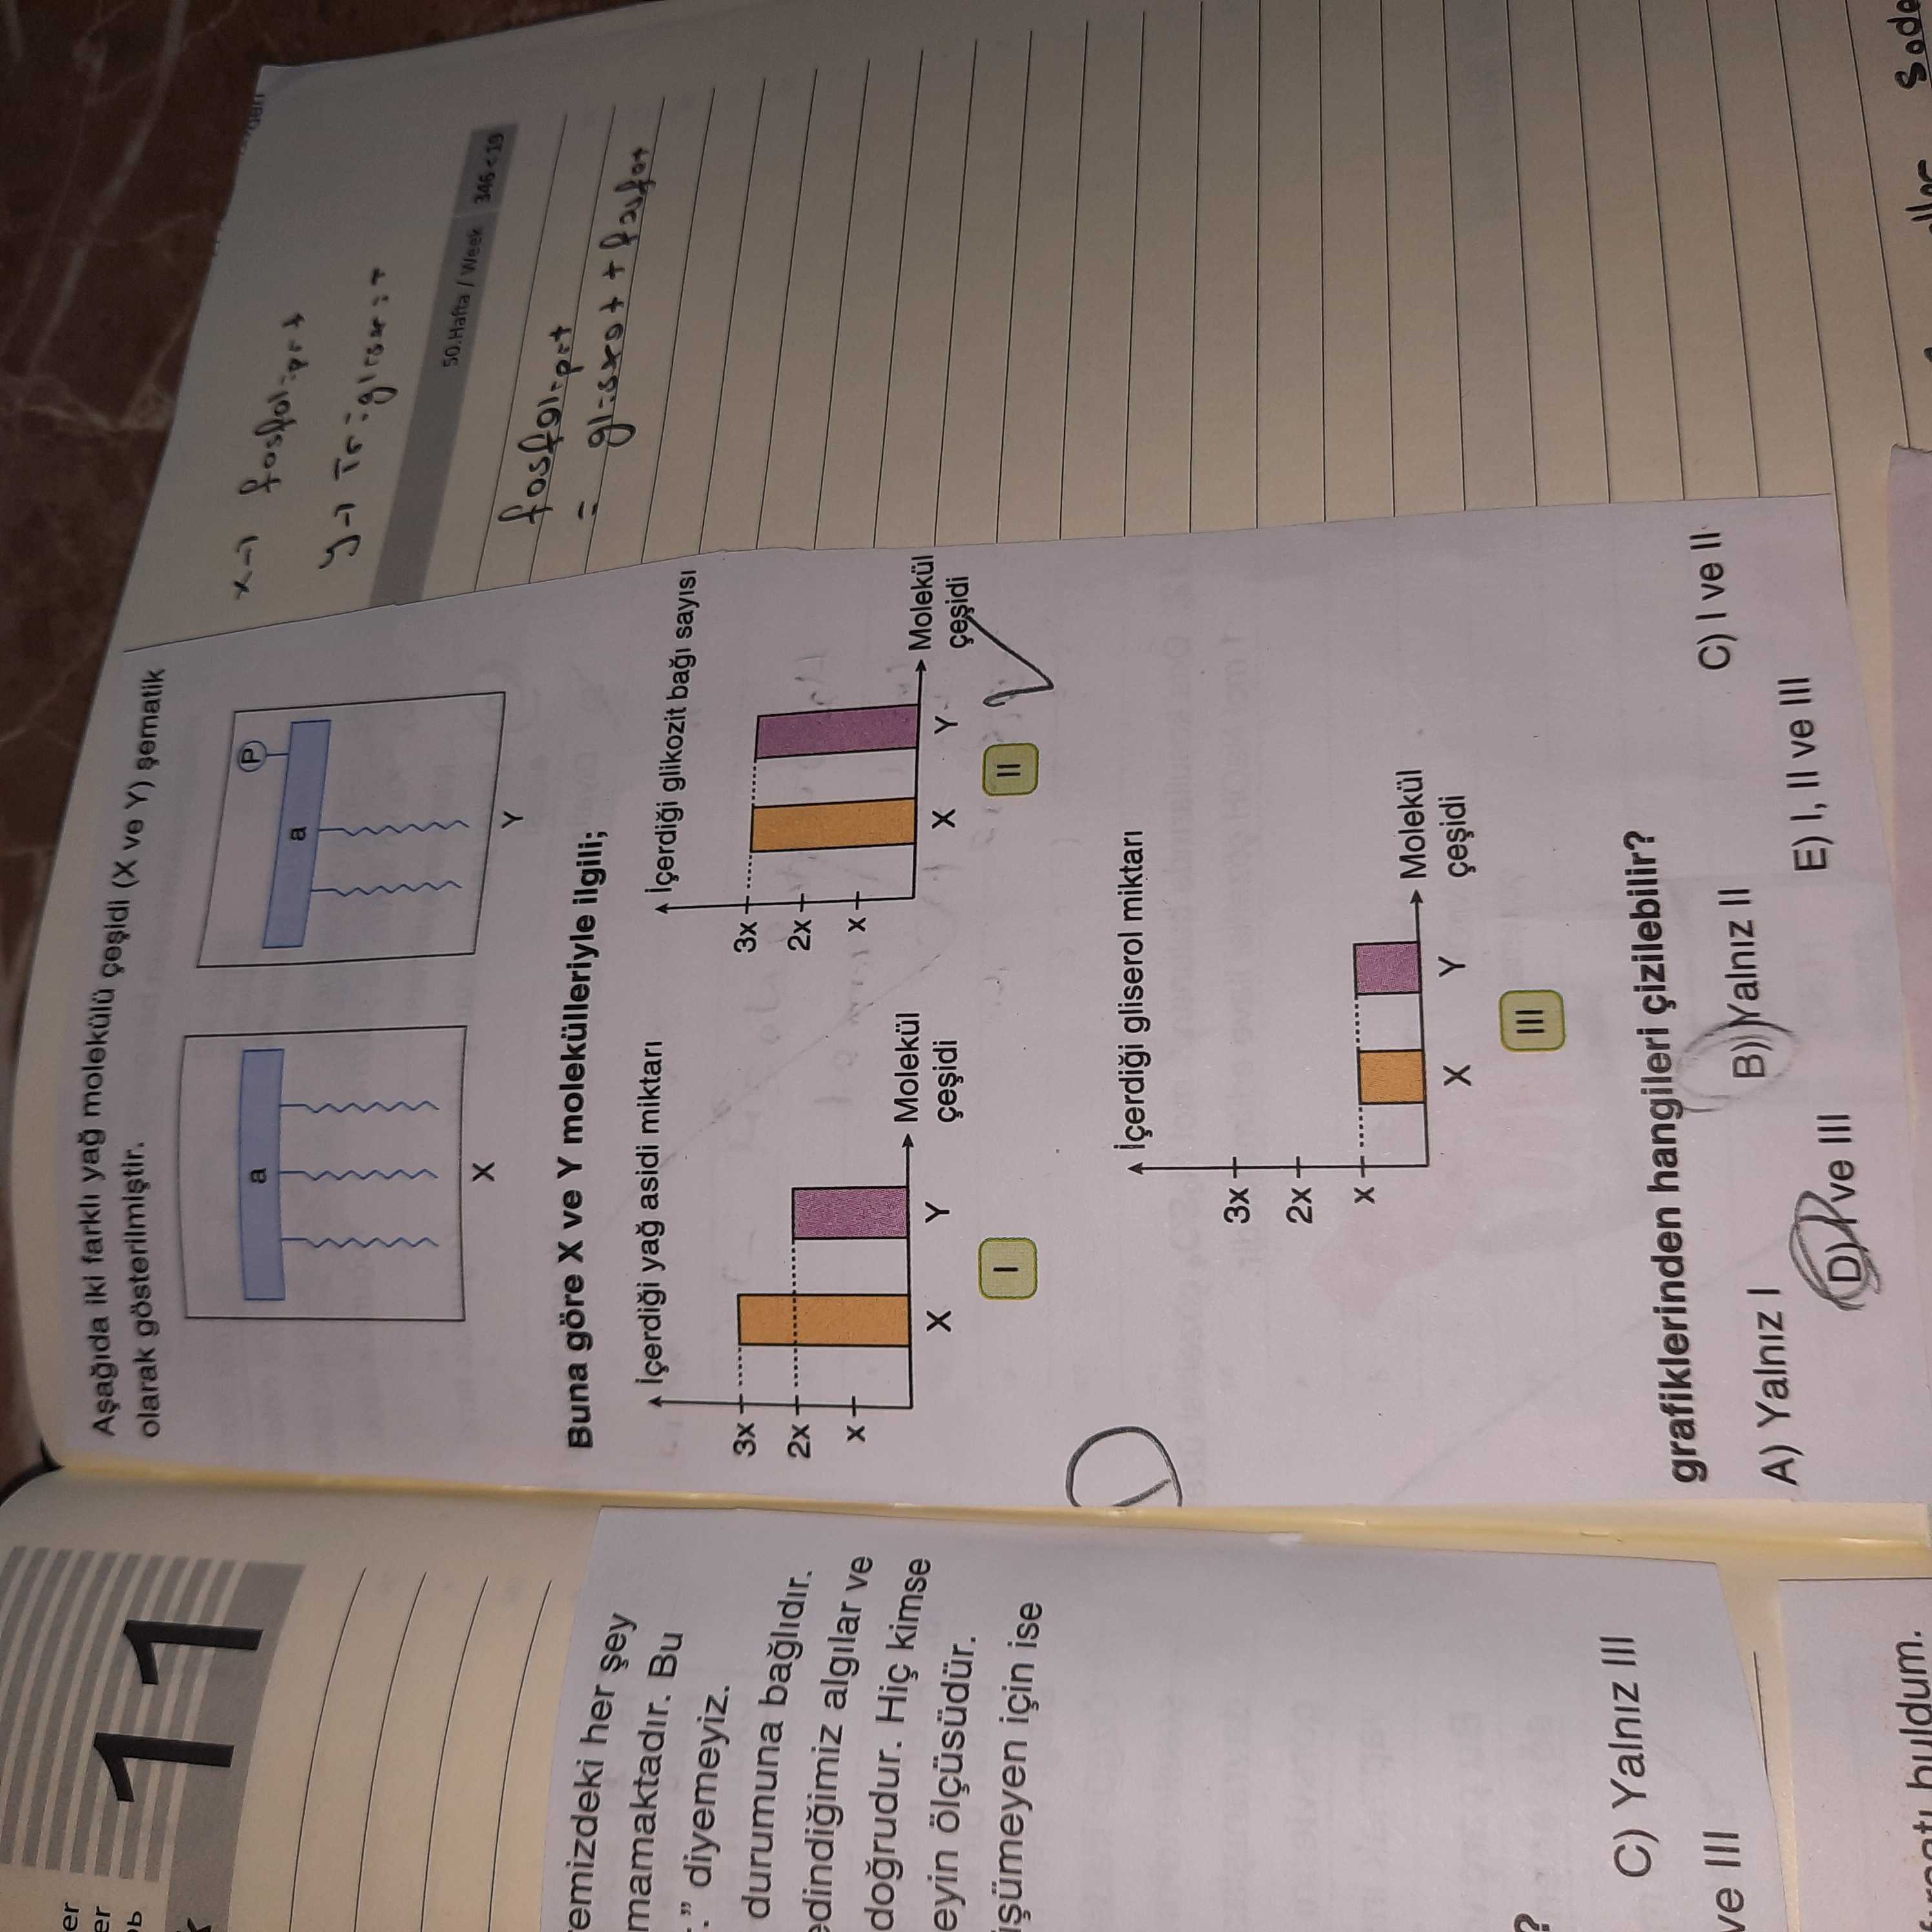 Aşağıda iki farklı yağ molekülü çeşidi (X ve Y) şematik
olarak gösterilmiştir.
a
X
P
a
Y
Buna göre X ve Y molekülleriyle ilgili;
İçerdiği yağ asidi miktarı
3x
2x
x
X
Y
Molekül
çeşidi
I
İçerdiği glikozit bağı sayısı
3x
2x
x
X
Y
Molekül
çeşidi
II
İçerdiği gliserol miktarı
3x
2x
x
X
Y
Molekül
çeşidi
III
grafiklerinden hangileri çizilebilir?
A) Yalnız I
B) Yalnız II
C) I ve II
D) I ve III
E) I, II ve III
x→ fosfolipit
y→ Trigliserit
50.Hafta / Week 346<19
fosfolipit
=
11
er
er
emizdeki her şey
mamaktadır. Bu
." diyemeyiz.
durumuna bağlıdır.
edindiğimiz algılar ve
doğrudur. Hiç kimse
eyin ölçüsüdür.
işümeyen için ise
?
C) Yalnız III
ve III
buldum.